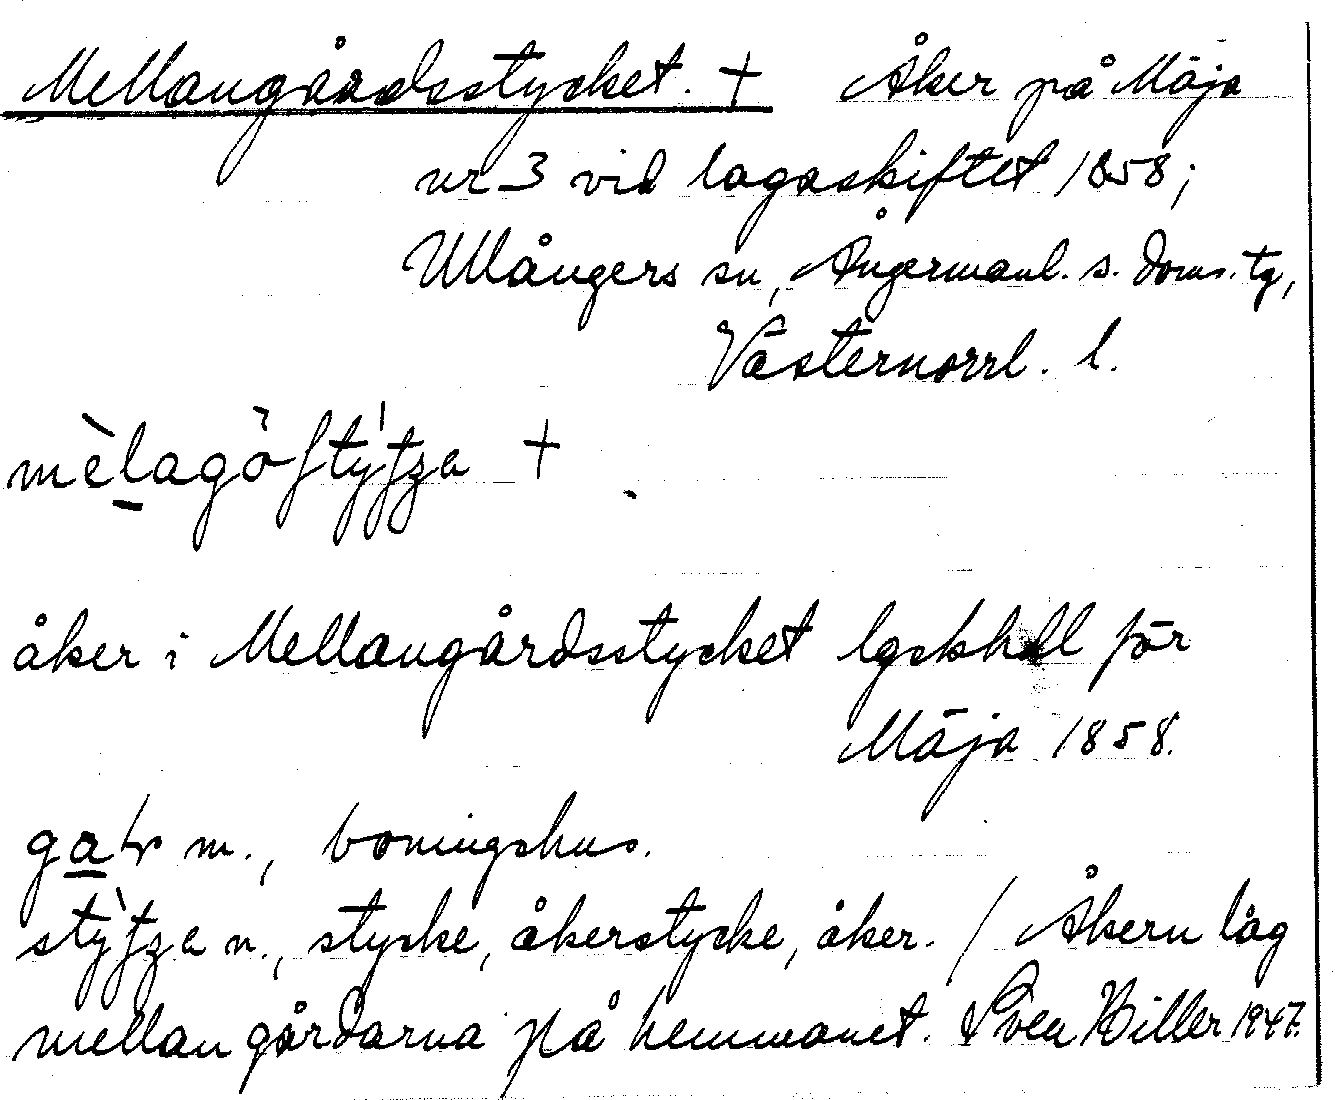 Mellangårdsstycket. + Åker på Mäja
nr 3 vid lagaskiftet 1858;
Ullångers sn, Ångermanl. s. doms. tg,
Västernorrl. l.
+
åker i Mellangårdsstycket lgskhdl för
Mäja 1858.
m., boningshus.
n., stycke, åkerstycke, åker. / Åkern låg
mellan gårdarna på hemmanet. Sven Hiller 1947.